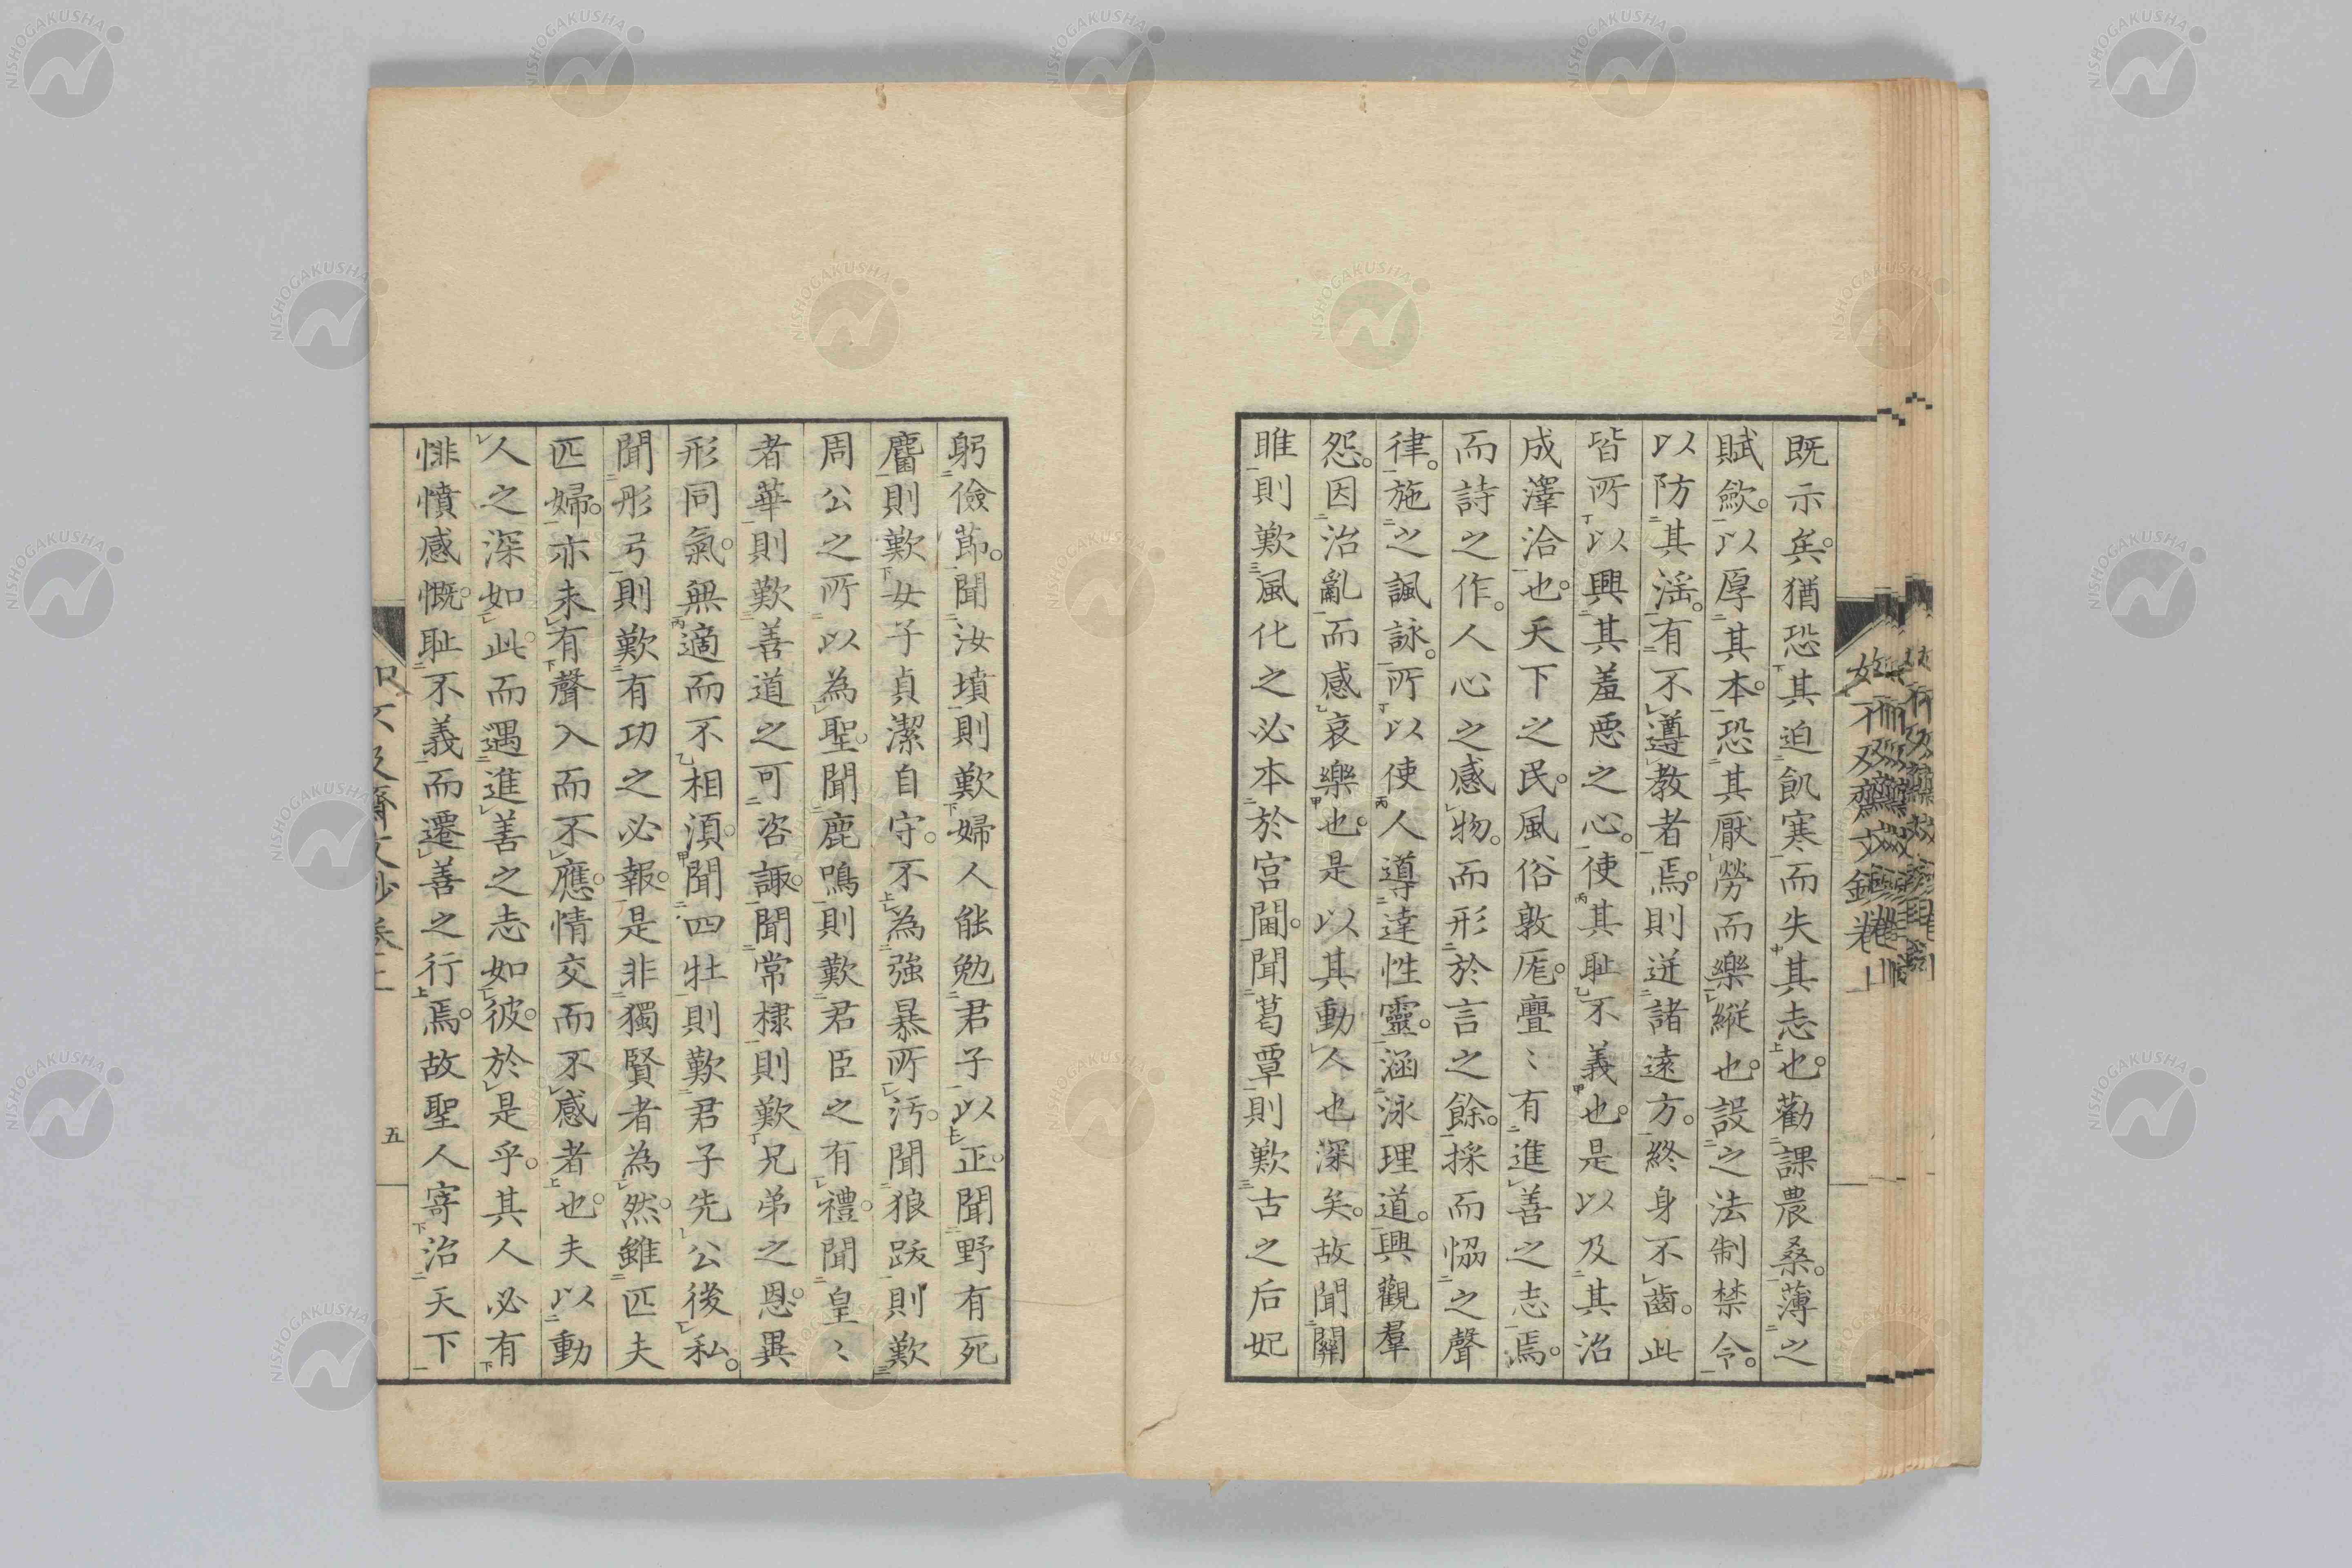 既示矣。猶恐其迫飢寒而失其志也。勸課農桑。薄之
賦斂。以厚其本。恐其厭勞而樂縦也。設之法制禁令。
以防其淫。有不遵教者焉。則迸諸遠方。終身不齒。此
皆所以興其羞惡之心。使其恥不義也。是以及其治
成澤洽也。天下之民。風俗敦厖。亹〻有進善之志焉。
而詩之作。人心之感物。而形於言之餘。採而恊之聲
律。施之諷詠。所以使人導達性靈。涵泳理道。興觀羣
怨。因治亂而感哀樂也。是以其動人也深矣。故聞關
雎則歎風化之必本於宮閫。聞葛覃則歎古之后妃
躬儉節。聞汝墳則歎婦人能勉君子以正。聞野有死
麕則歎女子貞潔自守。不為強暴所汚。聞狼跋則歎
周公之所以為聖。聞鹿鳴則歎君臣之有禮。聞皇〻
者華則歎善道之可咨諏。聞常棣則歎兄弟之恩。異
形同氣。無適而不相須。聞四牡則歎君子先公後私。
聞彤弓則歎有功之必報。是非獨賢者為然。雖匹夫
匹婦。亦未有聲入而不應。情交而不感者也。夫以動
人之深如此。而遇進善之志如彼。於是乎。其人必有
悱憤感慨。恥不義而遷善之行焉。故聖人寄治天下
五
NISHOGAKUSHA